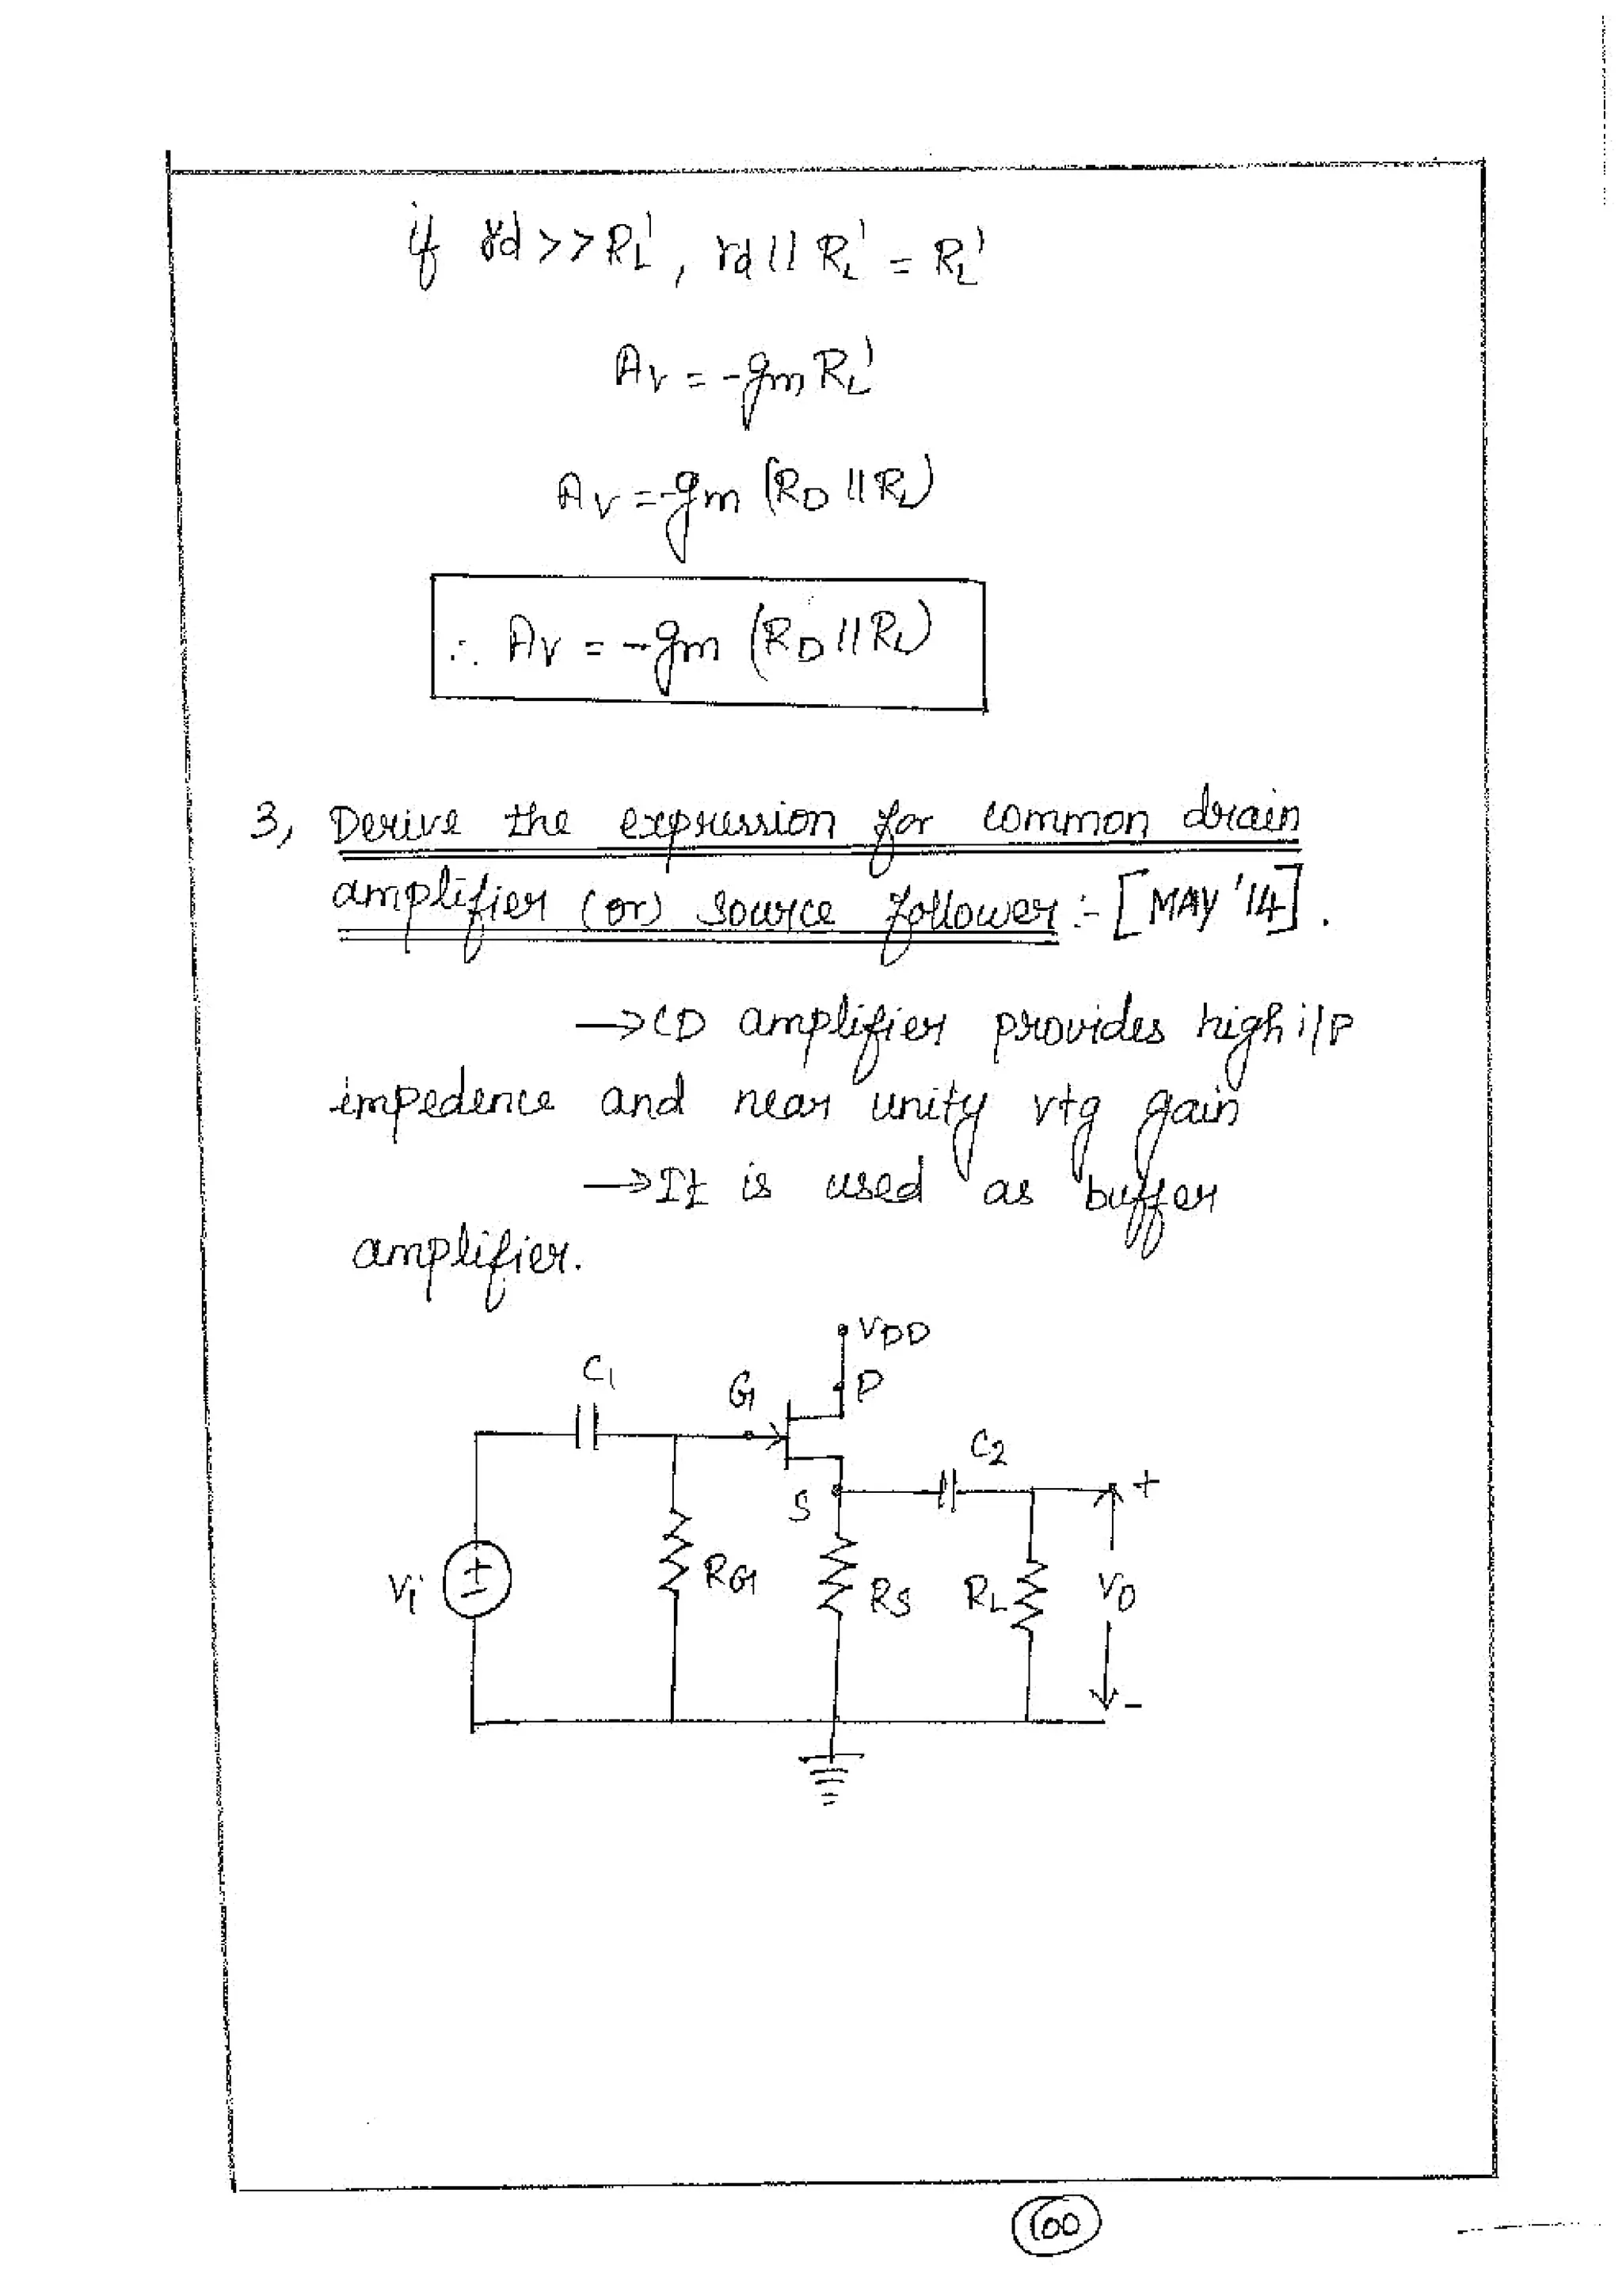 if rd >> RL', rd || RL' = RL'
Av = -gm RL'
Av = -gm (RD || RL)
∴ Av = -gm (RD || RL)
3, Derive the expression for common drain
amplifier (or) source follower :- [MAY '14].
→ CD amplifier provides high i/p
impedence and near unity vtg gain
→ It is used as buffer
amplifier.
VDD
C1
G
D
C2
S
+
Vi
+
-
RG
RS
RL
VO
-
60